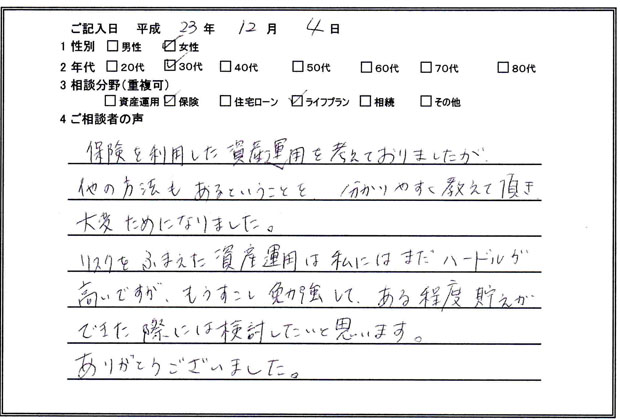 ご記入日 平成 23 年 12 月 4 日
1 性別 □男性 ☑女性
2 年代 □20代 ☑30代 □40代 □50代 □60代 □70代 □80代
3 相談分野(重複可)
□資産運用 ☑保険 □住宅ローン ☑ライフプラン □相続 □その他
4 ご相談者の声
保険を利用した資産運用を考えておりましたが、
他の方法もあるということを、分かりやすく教えて頂き
大変ためになりました。
リスクをふまえた資産運用は私にはまだハードルが
高いですが、もうすこし勉強して、ある程度貯えが
できた際には検討したいと思います。
ありがとうございました。